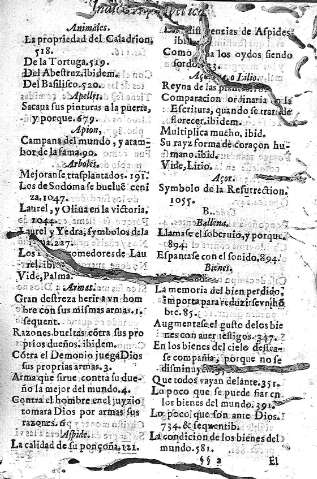 Animales.
La propiedad del Caladrion.
518.
De la Tortuga.519.
Del Abestruz.ibidem.
Del Basilisco.520.
Apelles.
Sacaua sus pinturas a la puerta,
y porque.679.
Apion,
Campana del mundo, y atam-
bor de la fama.90.
Arboles.
Mejoranse trasplantados.191.
Los de Sodoma se bueluẽ ceni
za.1047.
Laurel, y Oliua en la victoria.
1044.
Laurel y Yedra, symbolos de la
227.
Los comedores de Lau
rel. ibi
Vide, Palma.
Armas.
Gran destreza herir a vn hom
bre con sus mismas armas.1.
sequent.
Razones bueltas cõtra sus pro
prios dueños. ibidem.
Cõtra el Demonio juega Dios
sus proprias armas.3.
Arma que sirue contra su due-
ño la mejor del mundo.4.
Contra el hombre en el juyzio
tomara Dios por armas sus
razones.6
Aspide.
La calidad de su ponçoña.121.
diferencias de Aspides
ibid.
Como los oydos siendo
sordo.
o Lilio.
Reyna de las
Comparacion ordinaria en la
Escritura, quando se trata de
florecer.ibidem.
Multiplica mucho, ibid.
Su rayz forma de coraçon hu-
mano.ibid.
Vide, Lirio.
Açor.
Symbolo de la Resurrection.
1055.
B.
Ballena.
Llamase el soberuio, y porque.
894.
Espantase con el sonido.894.
Bienes.
La memoria del bien perdido,
importa para reduzirse vn hõ
bre.85.
Augmentase el gusto de los bie
nes con auer testigos.347.
En los bienes del cielo dessea-
se compañia, porque no se
disminuyen.
Que todos vayan delante.351.
Lo poco que se puede fiar en
los bienes del mundo.391.
Lo poco que son ante Dios.
734.& sequentib.
La condicion de los bienes del
mundo.581.
§§ 2 El